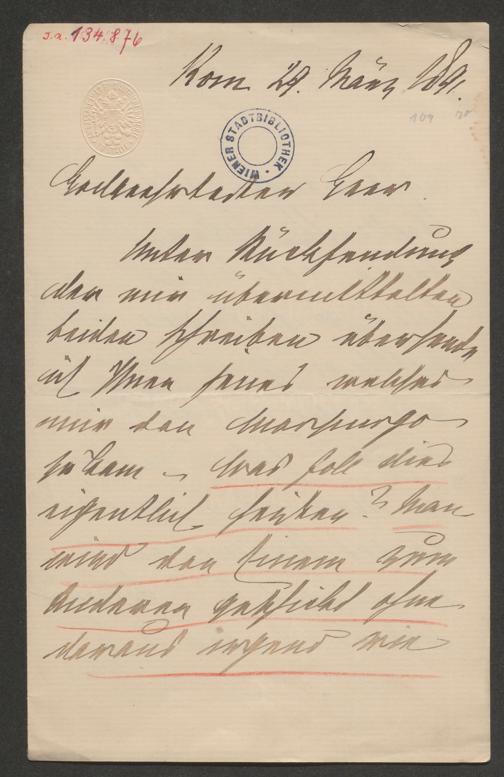 J.N. 134.876
Rom 29. März 1891.
WIENER STADTBIBLIOTHEK
Hochverehrtester Herr.
Unter Rücksendung
der mir übermittelten
beiden Schreiben übersende
ich Ihnen jenes welches
mir von Morpurgo
zukam – Was soll dies
eigentlich heißen? Man
wird von Einem zum
Anderen geschickt ohne
daraus irgend wie